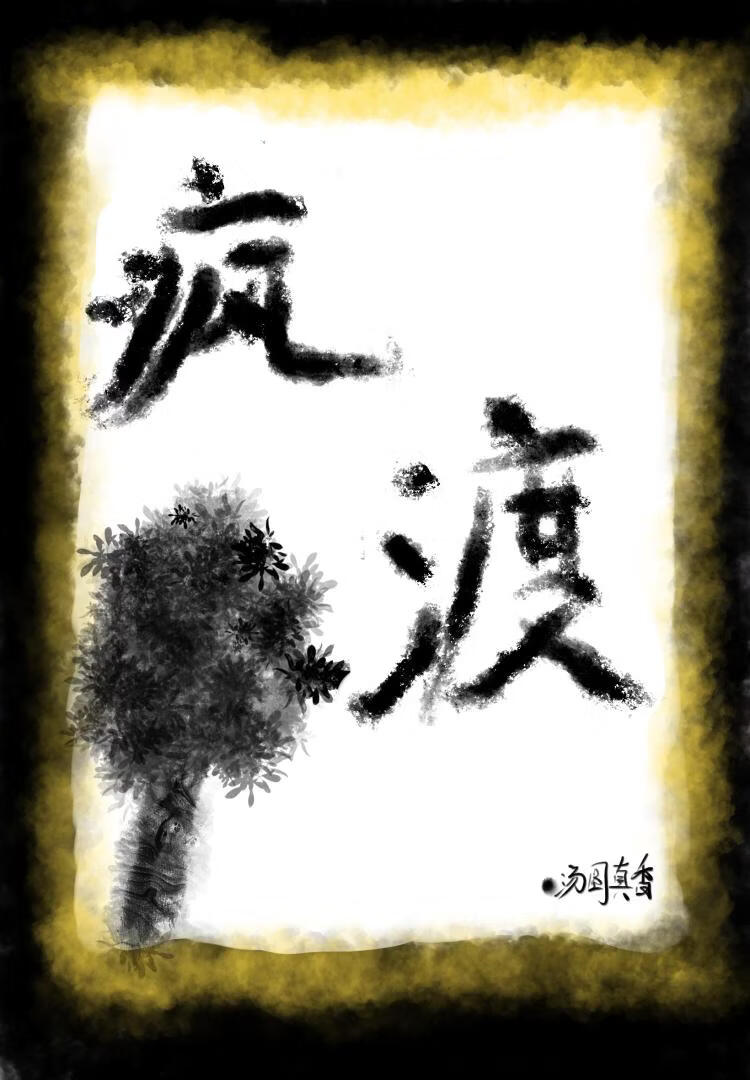 疯
渡
汤圆真香